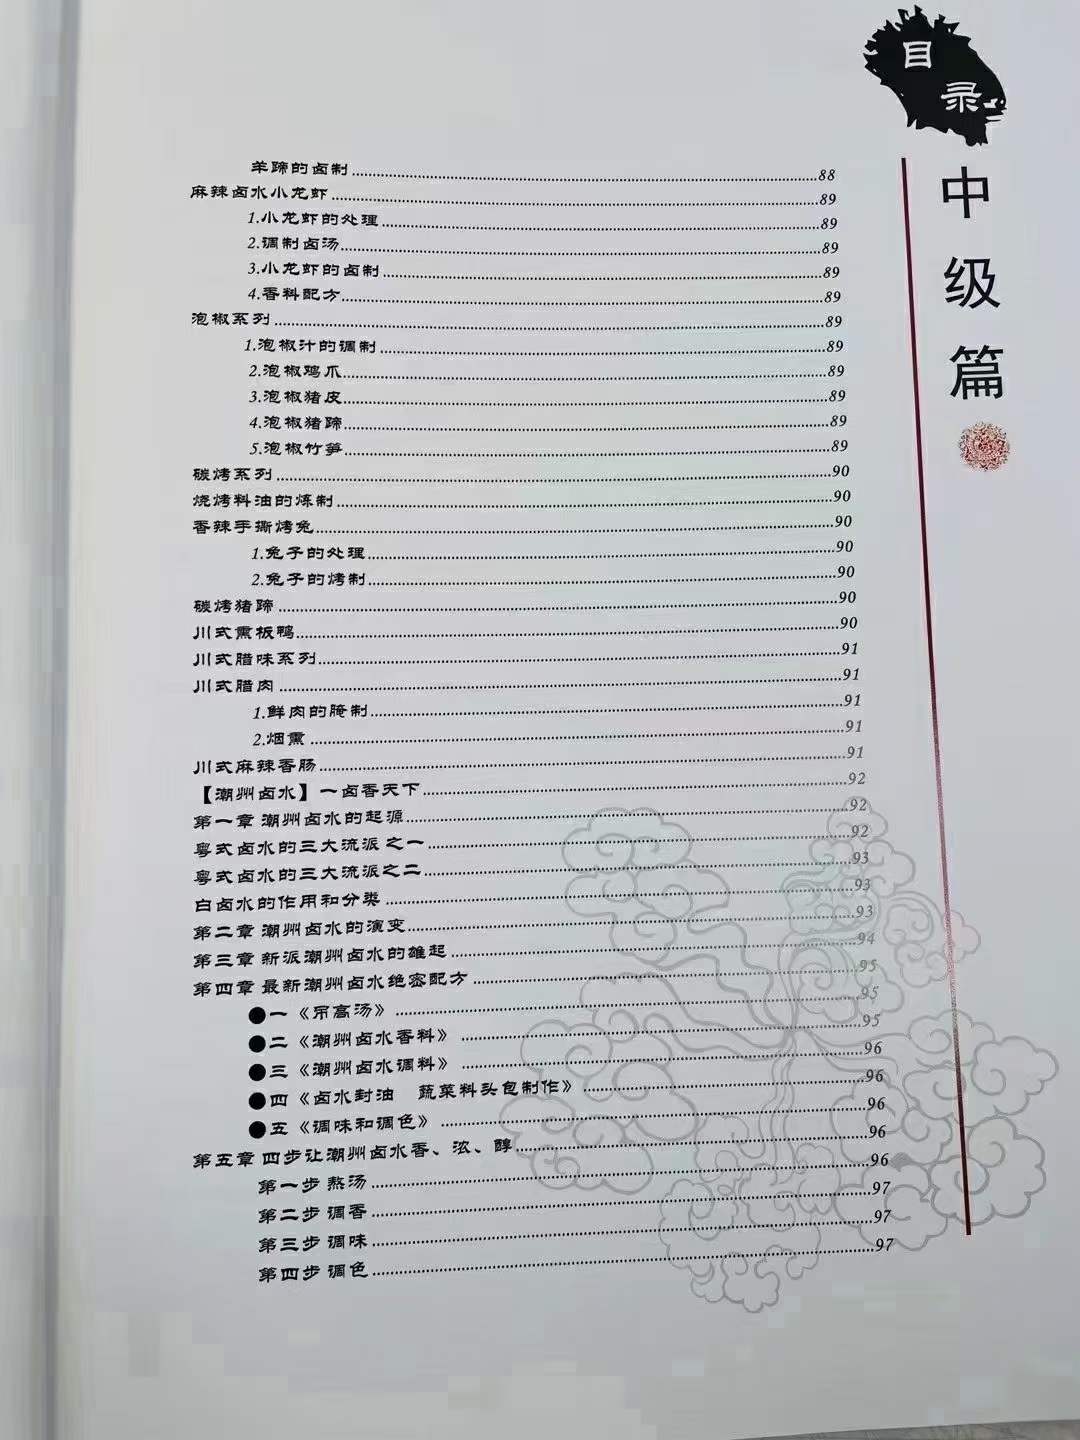 目录
中级篇
羊蹄的卤制................88
麻辣卤水小龙虾................89
1.小龙虾的处理................89
2.调制卤汤................89
3.小龙虾的卤制................89
4.香料配方................89
泡椒系列................89
1.泡椒汁的调制................89
2.泡椒鸡爪................89
3.泡椒猪皮................89
4.泡椒猪蹄................89
5.泡椒竹笋................89
碳烤系列................90
烧烤料油的炼制................90
香辣手撕烤兔................90
1.兔子的处理................90
2.兔子的烤制................90
碳烤猪蹄................90
川式熏板鸭................90
川式腊味系列................91
川式腊肉................91
1.鲜肉的腌制................91
2.烟熏................91
川式麻辣香肠................91
【潮州卤水】一卤香天下................92
第一章 潮州卤水的起源................92
粤式卤水的三大流派之一................92
粤式卤水的三大流派之二................93
白卤水的作用和分类................93
第二章 潮州卤水的演变................93
第三章 新派潮州卤水的雄起................94
第四章 最新潮州卤水绝密配方................95
●一《吊高汤》................95
●二《潮州卤水香料》................95
●三《潮州卤水调料》................96
●四《卤水封油 蔬菜料头包制作》................96
●五《调味和调色》................96
第五章 四步让潮州卤水香、浓、醇................96
第一步 熬汤................96
第二步 调香................97
第三步 调味................97
第四步 调色................97